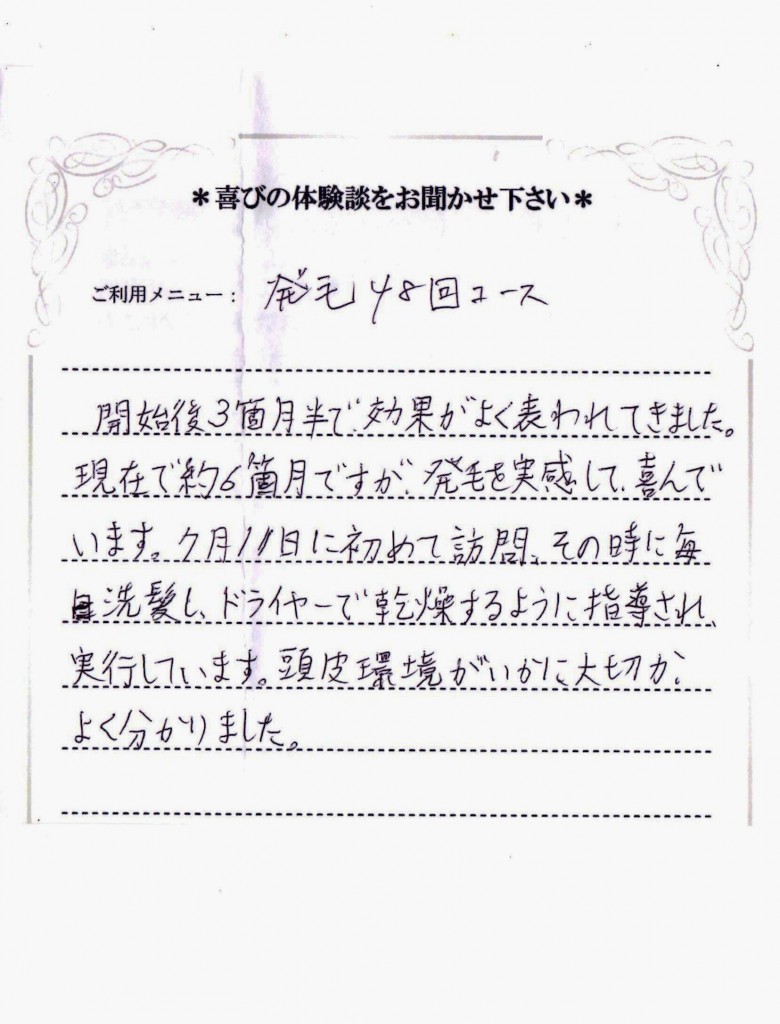 ＊喜びの体験談をお聞かせ下さい＊
ご利用メニュー： 発毛48回コース
開始後3箇月半で、効果がよく表われてきました。
現在で約6箇月ですが、発毛を実感して、喜んで
います。7月11日に初めて訪問、その時に毎
日洗髪し、ドライヤーで乾燥するように指導され、
実行しています。頭皮環境がいかに大切か、
よく分かりました。